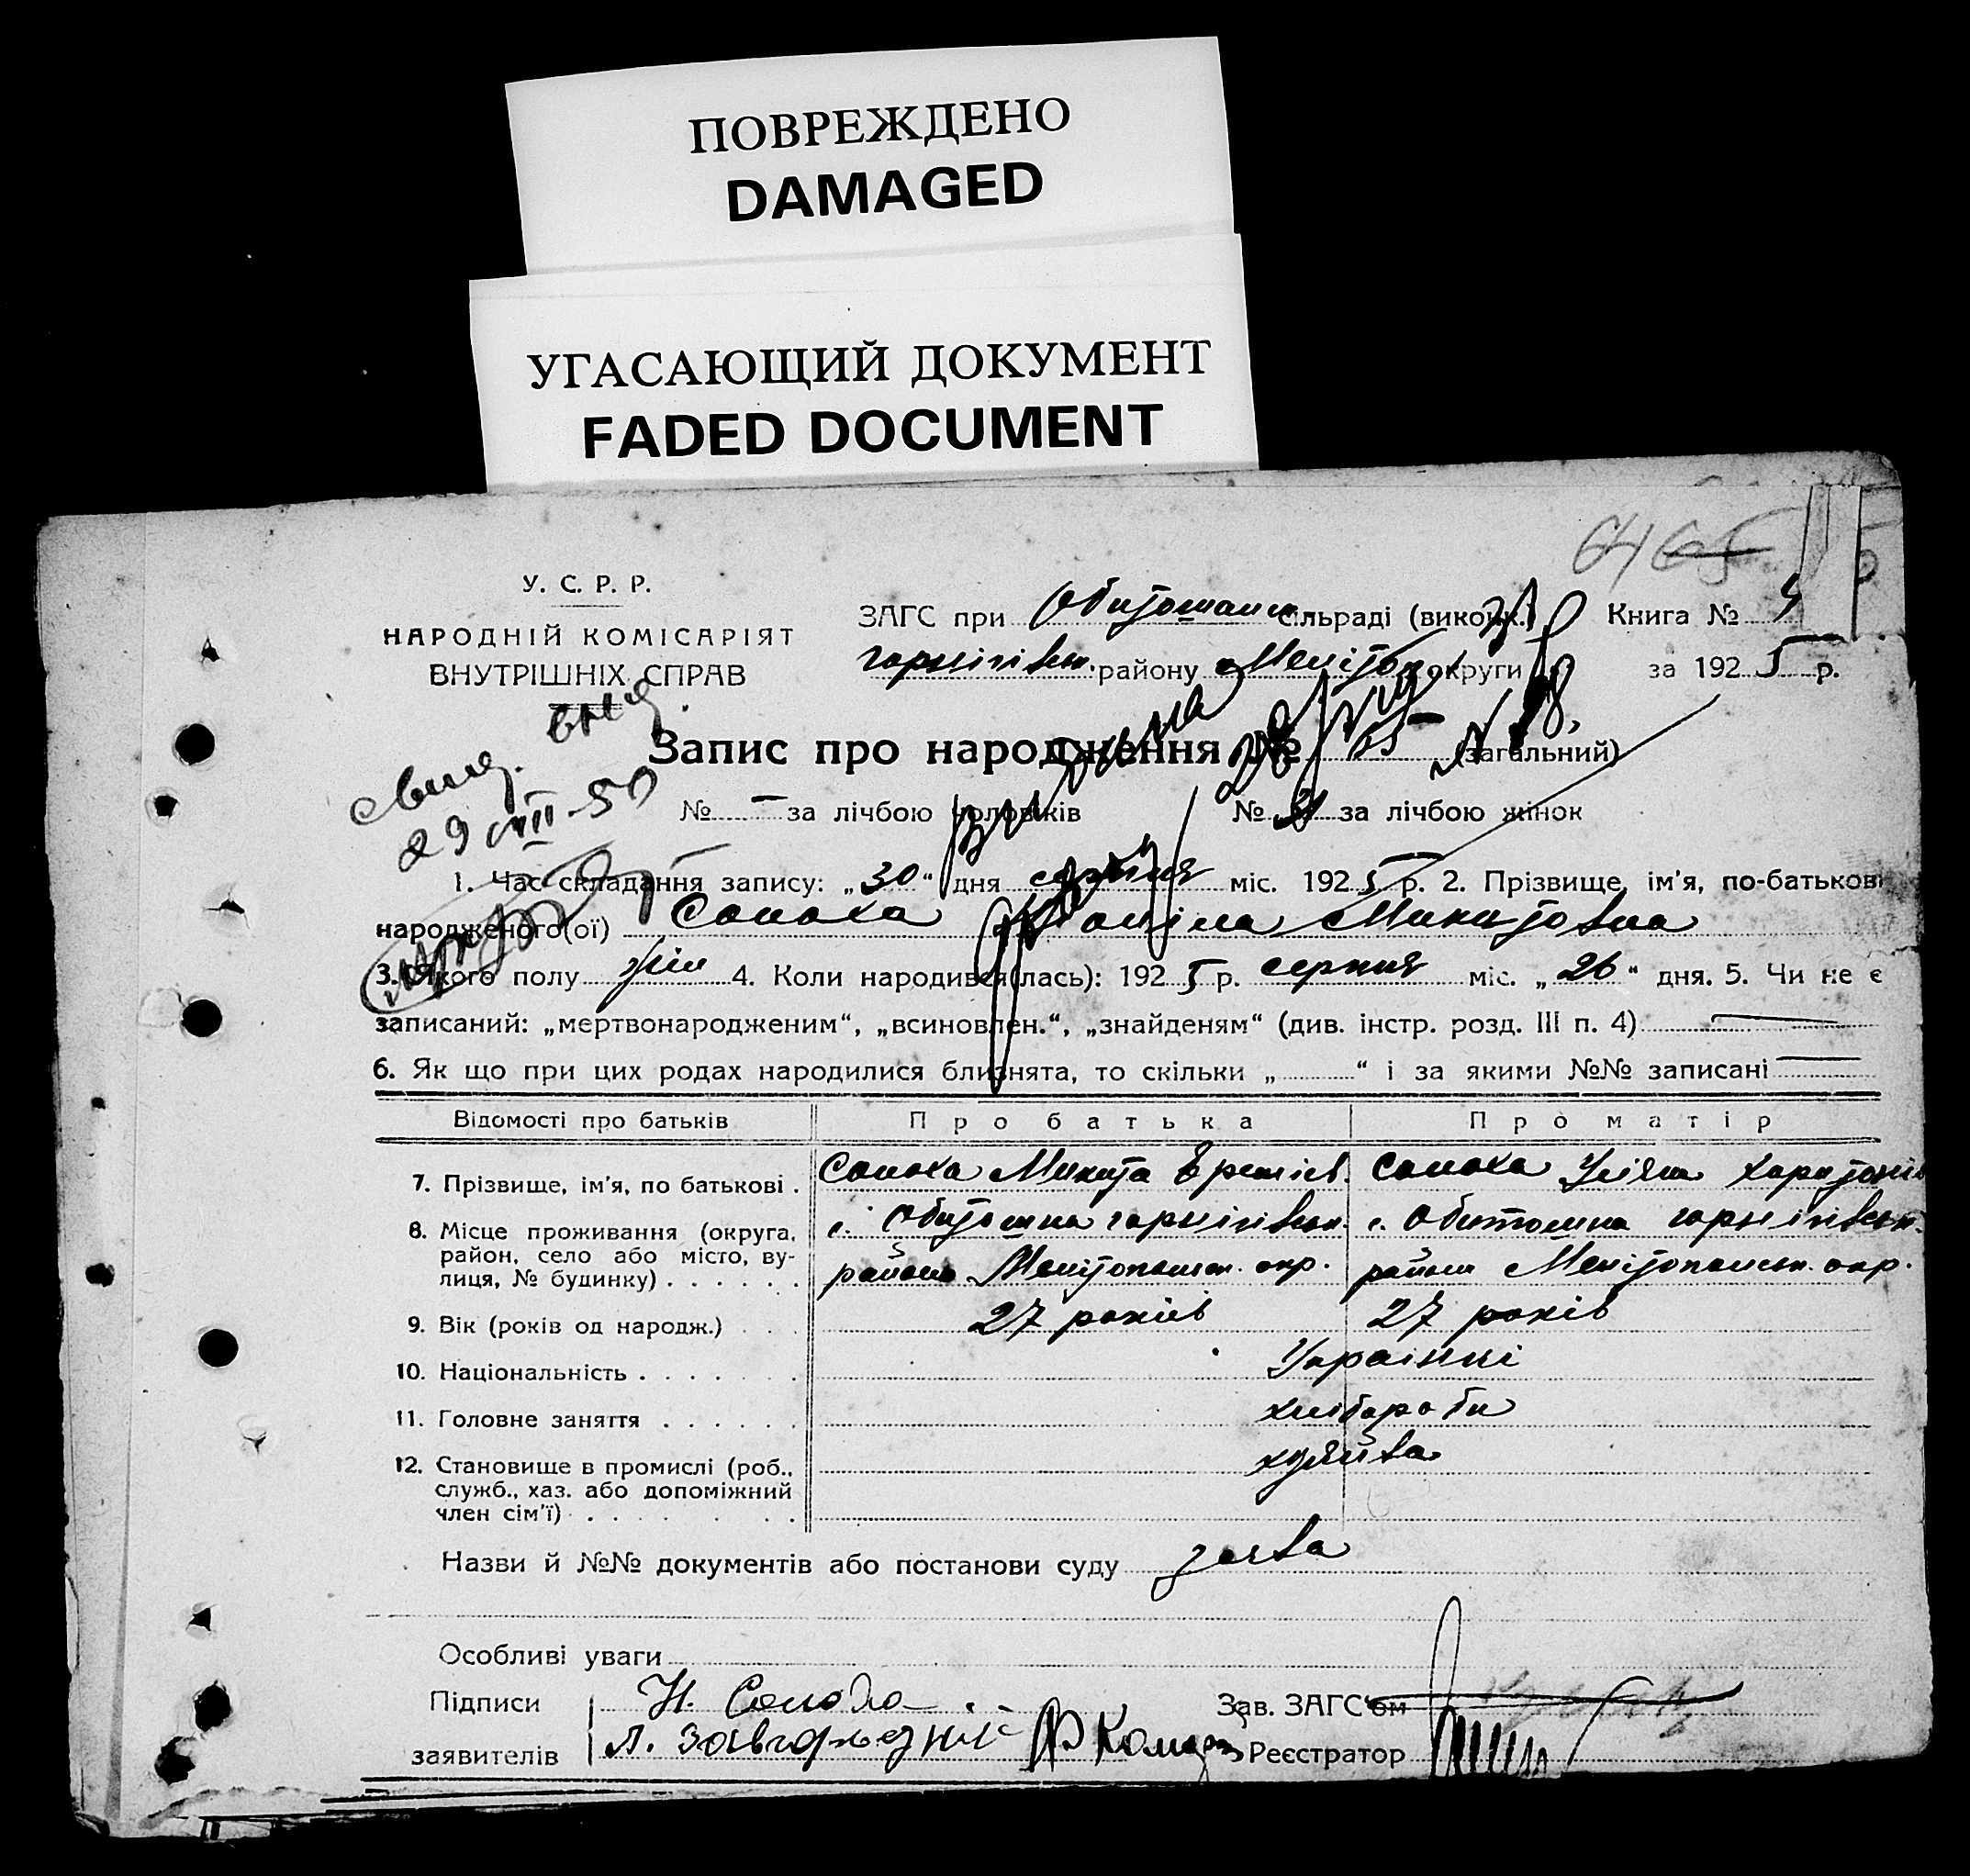 ПОВРЕЖДЕНО
DAMAGED
УГАСАЮЩИЙ ДОКУМЕНТ
FADED DOCUMENT
У. С. Р. Р.
НАРОДНІЙ КОМІСАРІЯТ
ВНУТРІШНІХ СПРАВ
ЗАГС при Обитошанск. сільраді (виконк.) Книга №
району Меліто округи за 1925 р.
Свид. выд.
29 VIII-50
Запис про народження № 55 (загальний)
№ – за лічбою чоловіків № за лічбою жінок
1. Час складання запису: „30“ дня серпня міс. 1925 р. 2. Прізвище, ім'я, по-батькові
народженого(ої) Солоха Микитовна
3. Якого полу жін 4. Коли народився(лась): 1925 р. серпня міс. „26“ дня. 5. Чи не є
записаний: „мертвонародженим“, „всиновлен.“, „знайденям“ (див. інстр. розд. III п. 4) —
6. Як що при цих родах народилися близнята, то скільки „ “ і за якими №№ записані —
Відомості про батьків Про батька Про матір
7. Прізвище, ім'я, по батькові . Солоха Микита Солоха Уляна Харитонів
8. Місце проживання (округа, район, село або місто, вулиця, № будинку) . . . . . . с. Обитошна чернігівськ. району Мелітопольськ. окр. с. Обитошна чернігівськ. району Мелітопольськ. окр.
9. Вік (років од народж.) . . . 27 років 27 років
10. Національність . . . . . . . Українці
11. Головне заняття . . . . . . хлібороби
12. Становище в промислі (роб., служб., хаз. або допоміжний член сім'ї) . . . . . . . хазяйва
Назви й №№ документів або постанови суду заява
Особливі уваги
Підписи Н. Солоха Зав. ЗАГС'ом
заявителів Л. Завгородній Реєстратор